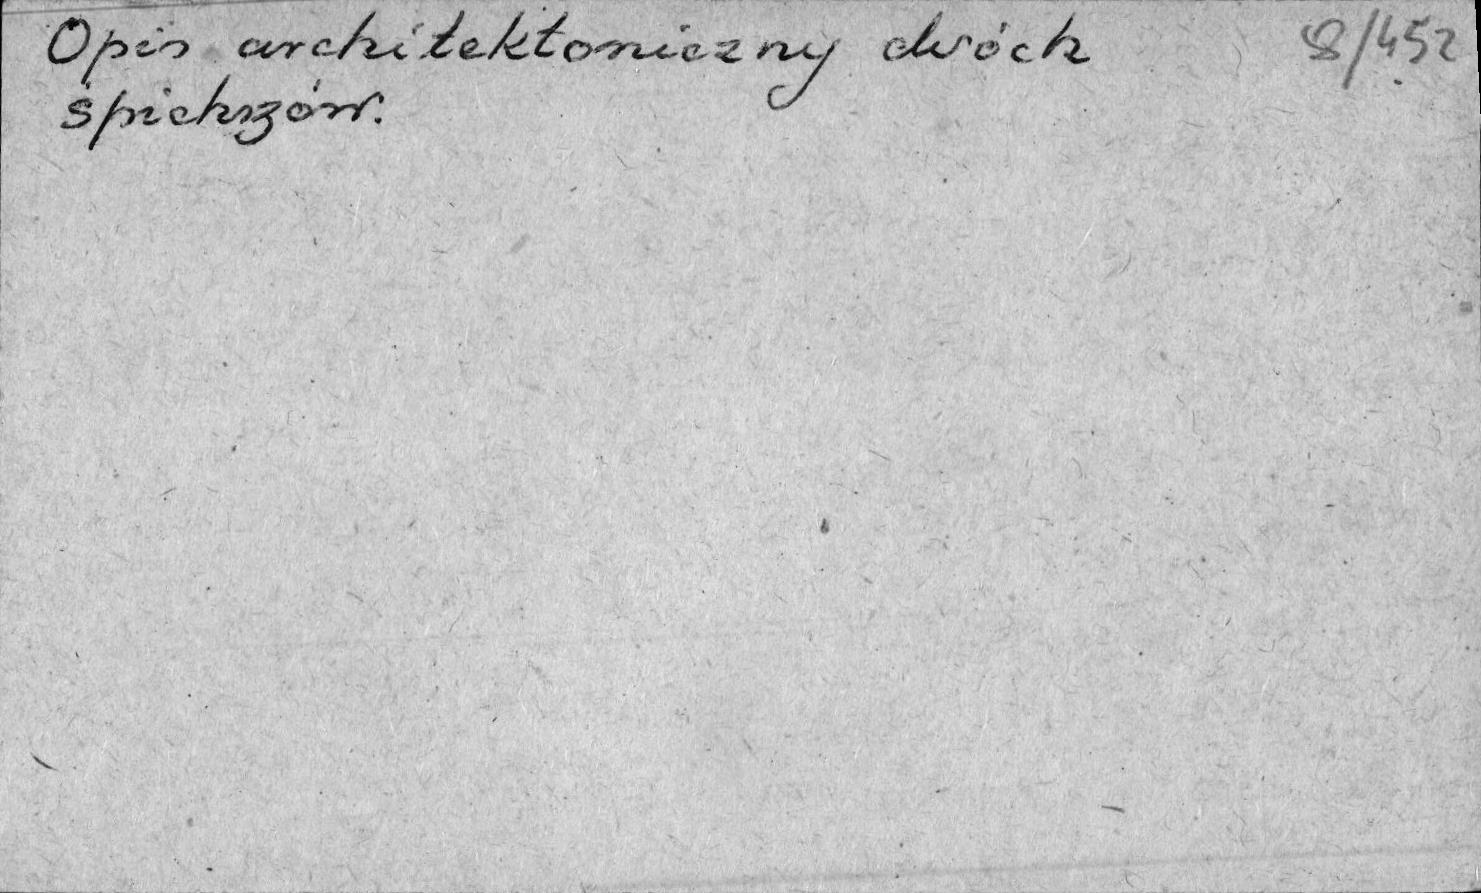 Opis architektoniczny dwóch 8/452
śpichrzów.